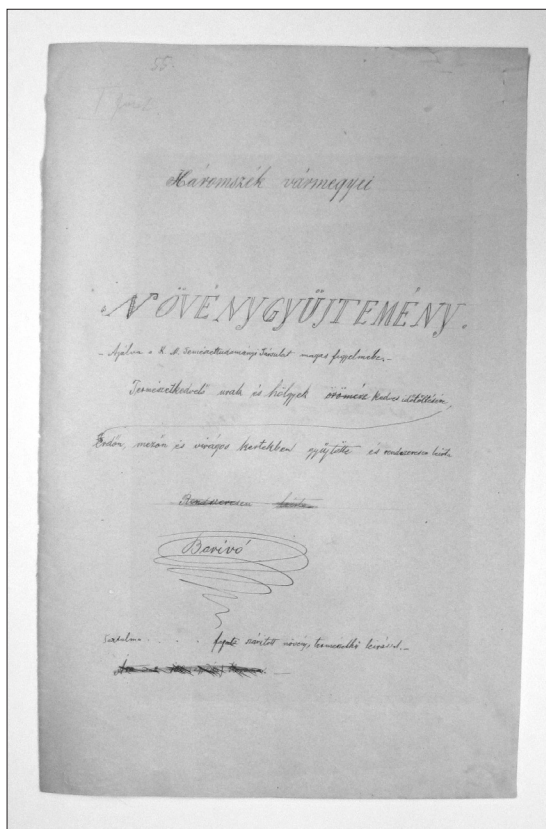 55.
Háromszék vármegyei
NÖVÉNYGYÜJTEMÉNY.
– Ajálva a K. M. Természettudományi Társulat magas figyelmébe. –
Természetkedvelő urak és hölgyek örömére kedves időtöltésül,
Erdőn, mezőn és virágos kertekben gyűjtötte és rendszeresen leirta
Rendszeresen leirta
Barivó
Tartalma . . . . . fajnál szárított növény, termeszethű leirással. –